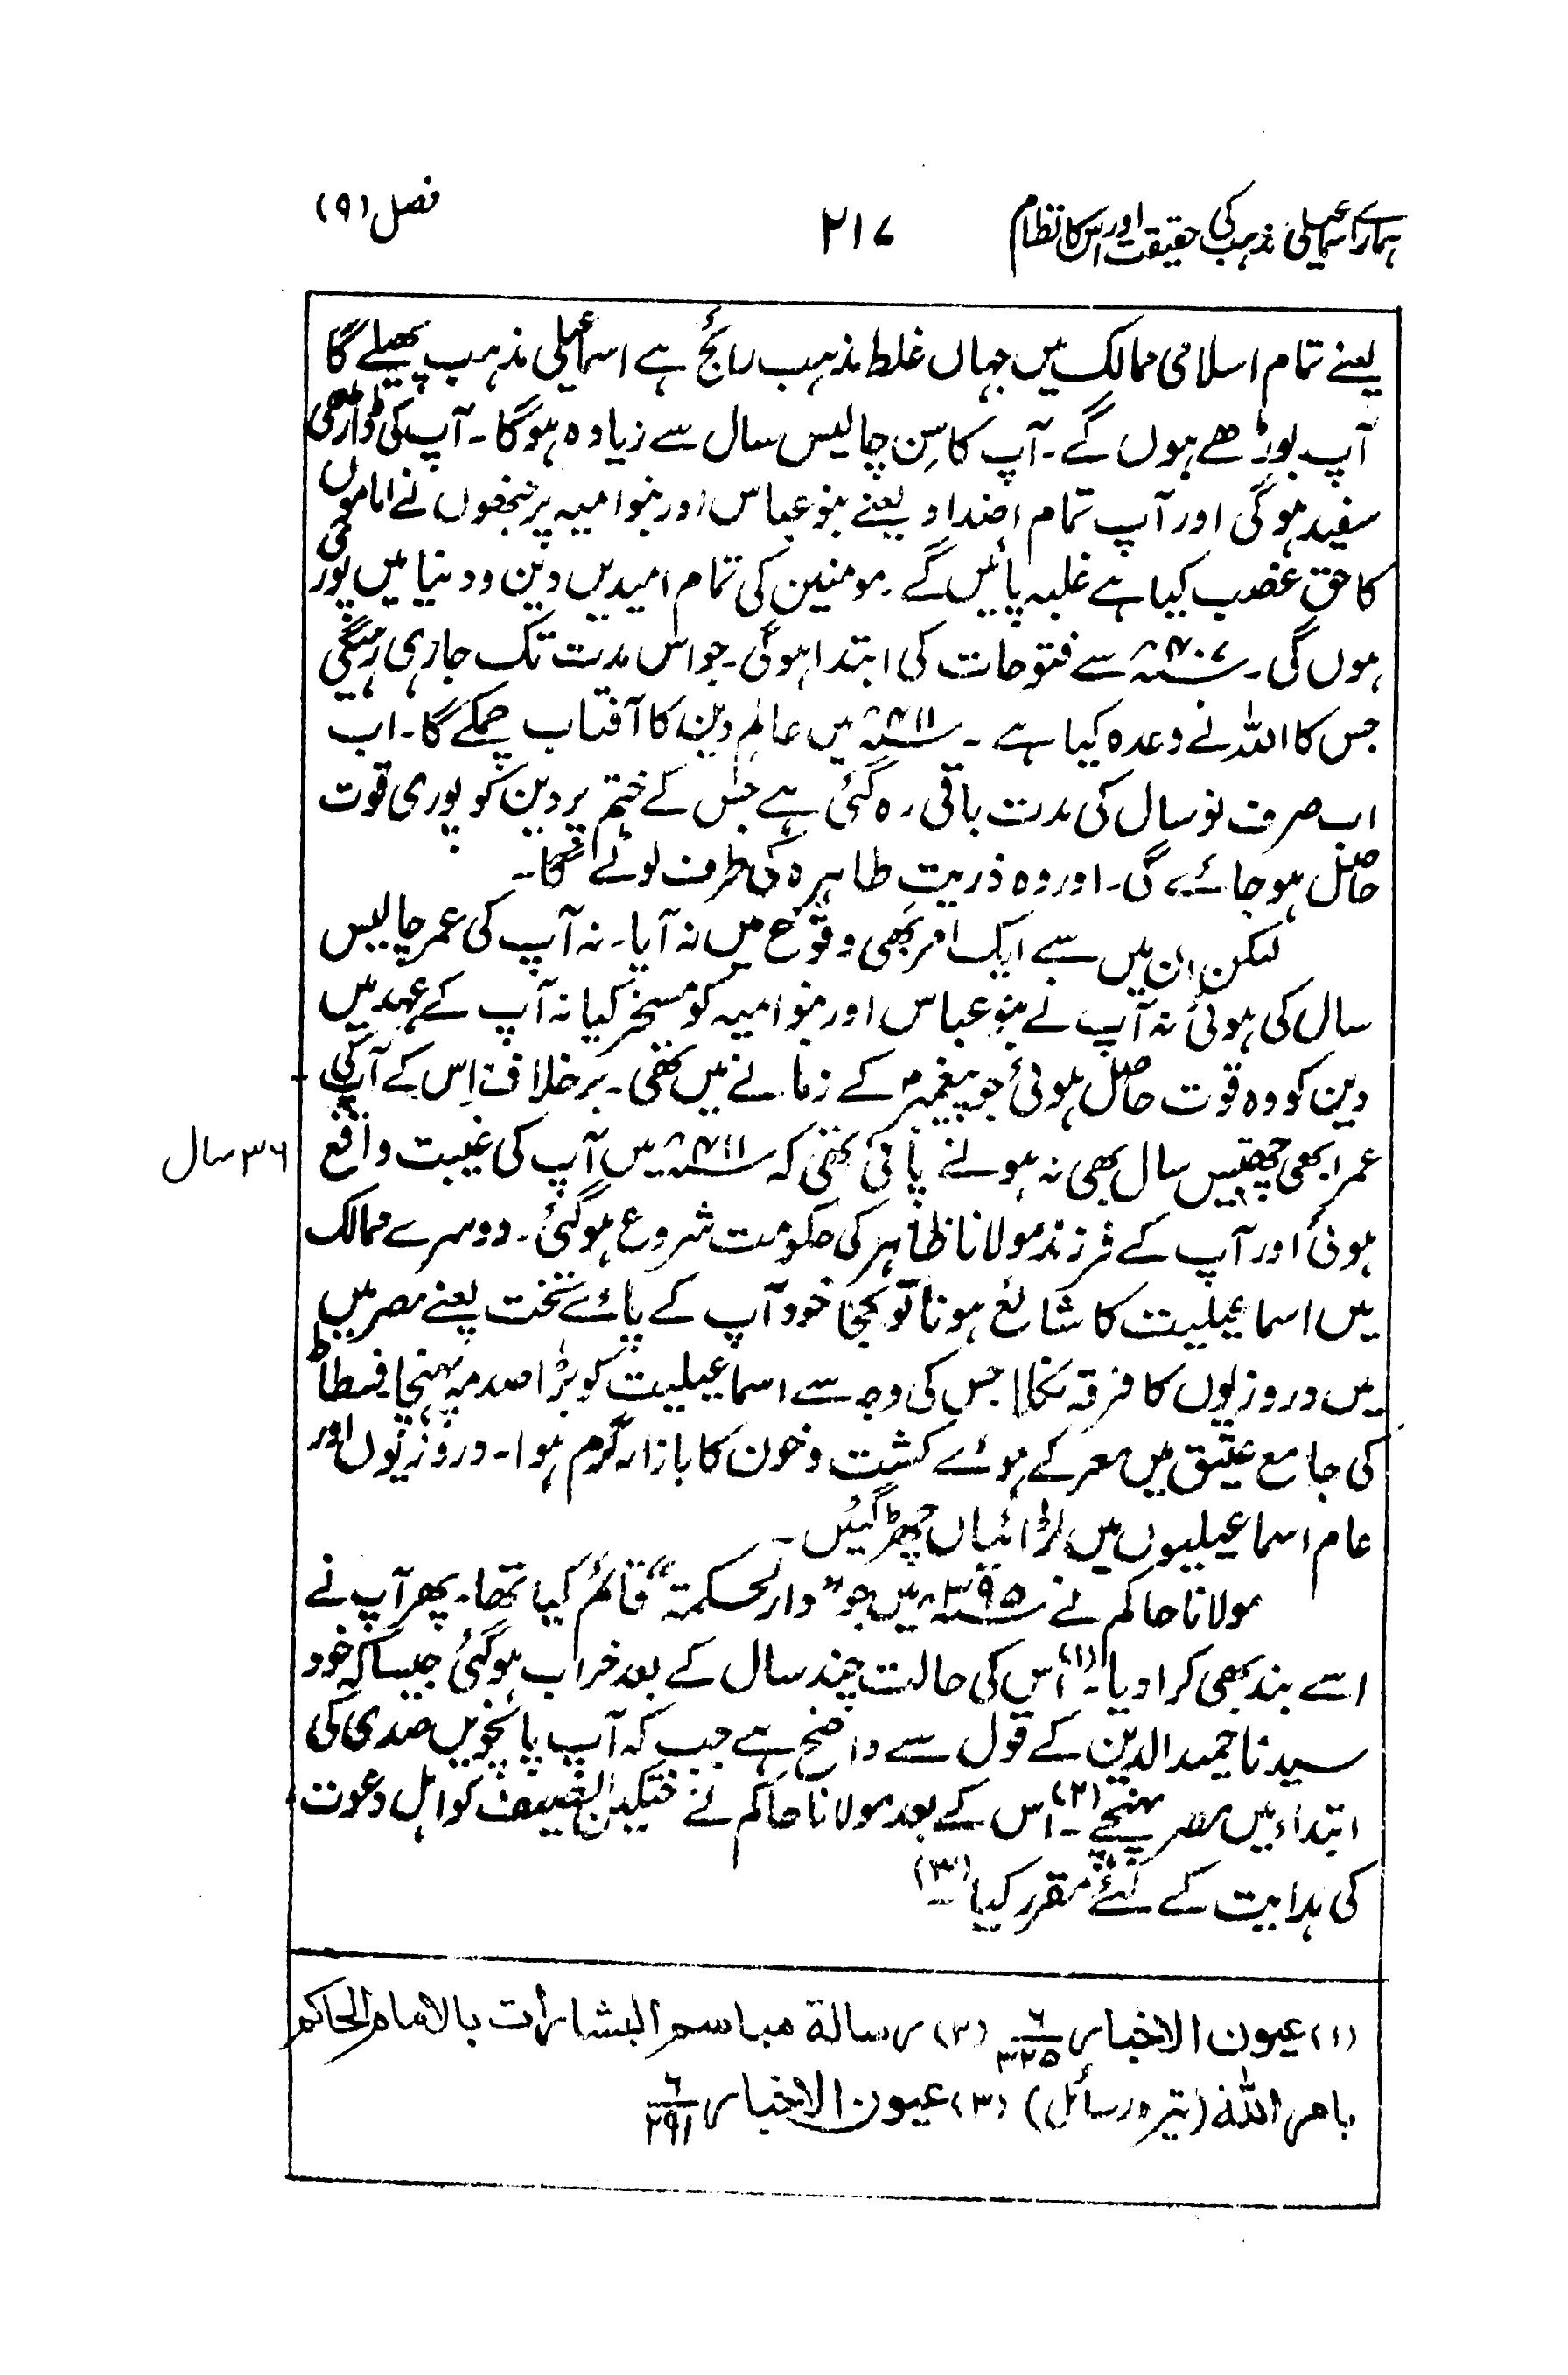 ہمارے اسماعیلی مذہب کی حقیقت اور اس کا نظام
۲۱۷
فصل (۹)
یعنے تمام اسلامی ممالک میں جہاں غلط مذہب رائج ہے اسماعیلی مذہب پھیلے گا
آپ بوڑھے ہوں گے۔ آپ کا سِن چالیس سال سے زیادہ ہوگا۔ آپ کی ڈاڑھی
سفید ہوگی اور آپ تمام اضداد یعنے بنو عباس اور بنو امیہ پر جنھوں نے اماموں
کا حق غضب کیا ہے غلبہ پائیں گے۔ مومنین کی تمام امیدیں دین و دنیا میں پوری
ہوں گی۔ ۴۰۷ھ سے فتوحات کی ابتدا ہوگی۔ جو اس مدت تک جاری رہینگی
جس کا اللہ نے وعدہ کیا ہے۔ ۴۱۱ھ میں عالمِ دین کا آفتاب چمکے گا۔ اب
اب صرف نو سال کی مدت باقی رہ گئی ہے جس کے ختم پر دین کو پوری قوت
حاصل ہو جائے گی۔ اور وہ ذریتِ طاہرہ کی طرف لوٹے گا۔
لیکن ان میں سے ایک امر بھی وقوع میں نہ آیا۔ نہ آپ کی عمر چالیس
سال کی ہوئی نہ آپ نے بنو عباس اور بنو امیہ کو مسخر کیا نہ آپ کے عہد میں
دین کو وہ قوت حاصل ہوئی جو پیغمبرؐ کے زمانے میں تھی۔ برخلاف اِس کے آپ کی
عمر ابھی چھتیس سال بھی نہ ہونے پائی تھی کہ ۴۱۱ھ میں آپ کی غیبت واقع
۳۶ سال
ہوئی اور آپ کے فرزند مولانا ظاہر کی حکومت شروع ہوگئی۔ دوسرے ممالک
میں اسماعیلیت کا شائع ہونا تو کجا خود آپ کے پائے تخت یعنے مصر میں
میں دروزیوں کا فرقہ نکلا جس کی وجہ سے اسماعیلیت کو بڑا صدمہ پہنچا فسطاط
کی جامع عتیق میں معرکے ہوئے کشت و خون کا بازار گرم ہوا۔ دروزیوں اور
عام اسماعیلیوں میں لڑائیاں چھڑ گئیں۔
مولانا حاکم نے ۳۹۵ھ میں جو ”دار الحکمۃ“ قائم کیا تھا۔ پھر آپ نے
اسے بند بھی کرا دیا۔(۱) اُس کی حالت چند سال کے بعد خراب ہوگئی جیسا کہ خود
سیدنا حمید الدین کے قول سے واضح ہے جب کہ آپ پانچویں صدی کی
ابتداء میں مصر پہنچے (۲)۔ اس کے بعد مولانا حاکم نے ختکین الضیف کو اہل دعوت
کی ہدایت کے لئے مقرر کیا (۳)۔
(۱) عیون الاخبار ۶/۳۲۵ (۲) رسالۃ مباسم البشارات بالامام الحاکم
بامر اللہ (تیرہ رسائل) (۳) عیون الاخبار ۶/۲۹۱